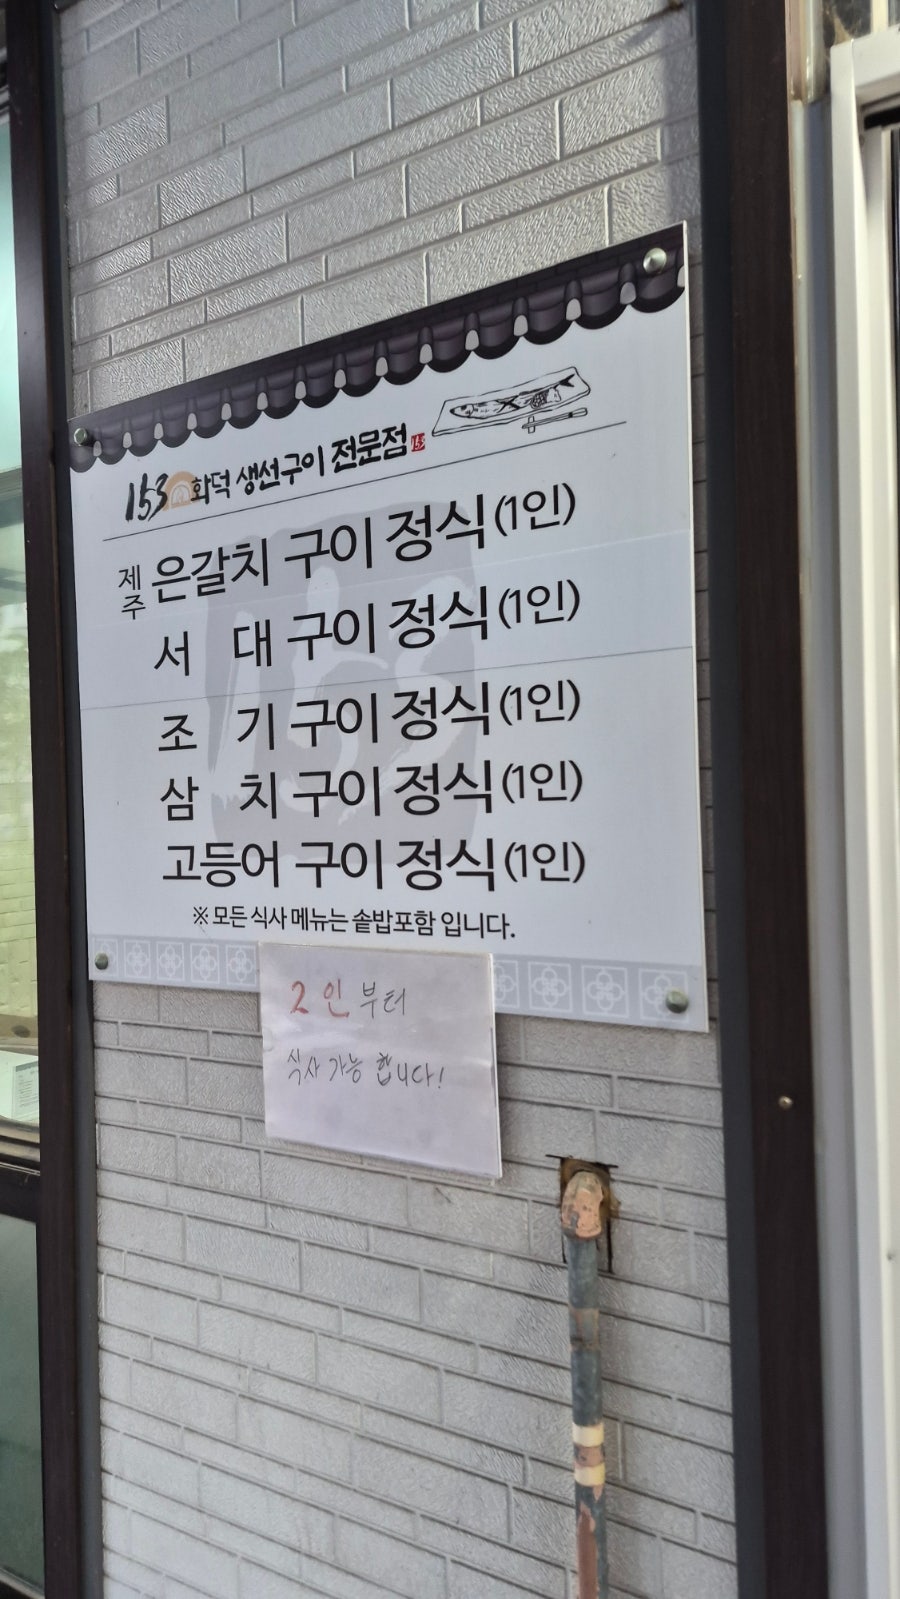 153 화덕 생선구이 전문점 153
제주 은갈치 구이 정식 (1인)
서 대 구이 정식 (1인)
조 기 구이 정식 (1인)
삼 치 구이 정식 (1인)
고등어 구이 정식 (1인)
※ 모든 식사 메뉴는 솥밥포함 입니다.
2인 부터
식사 가능 합니다!